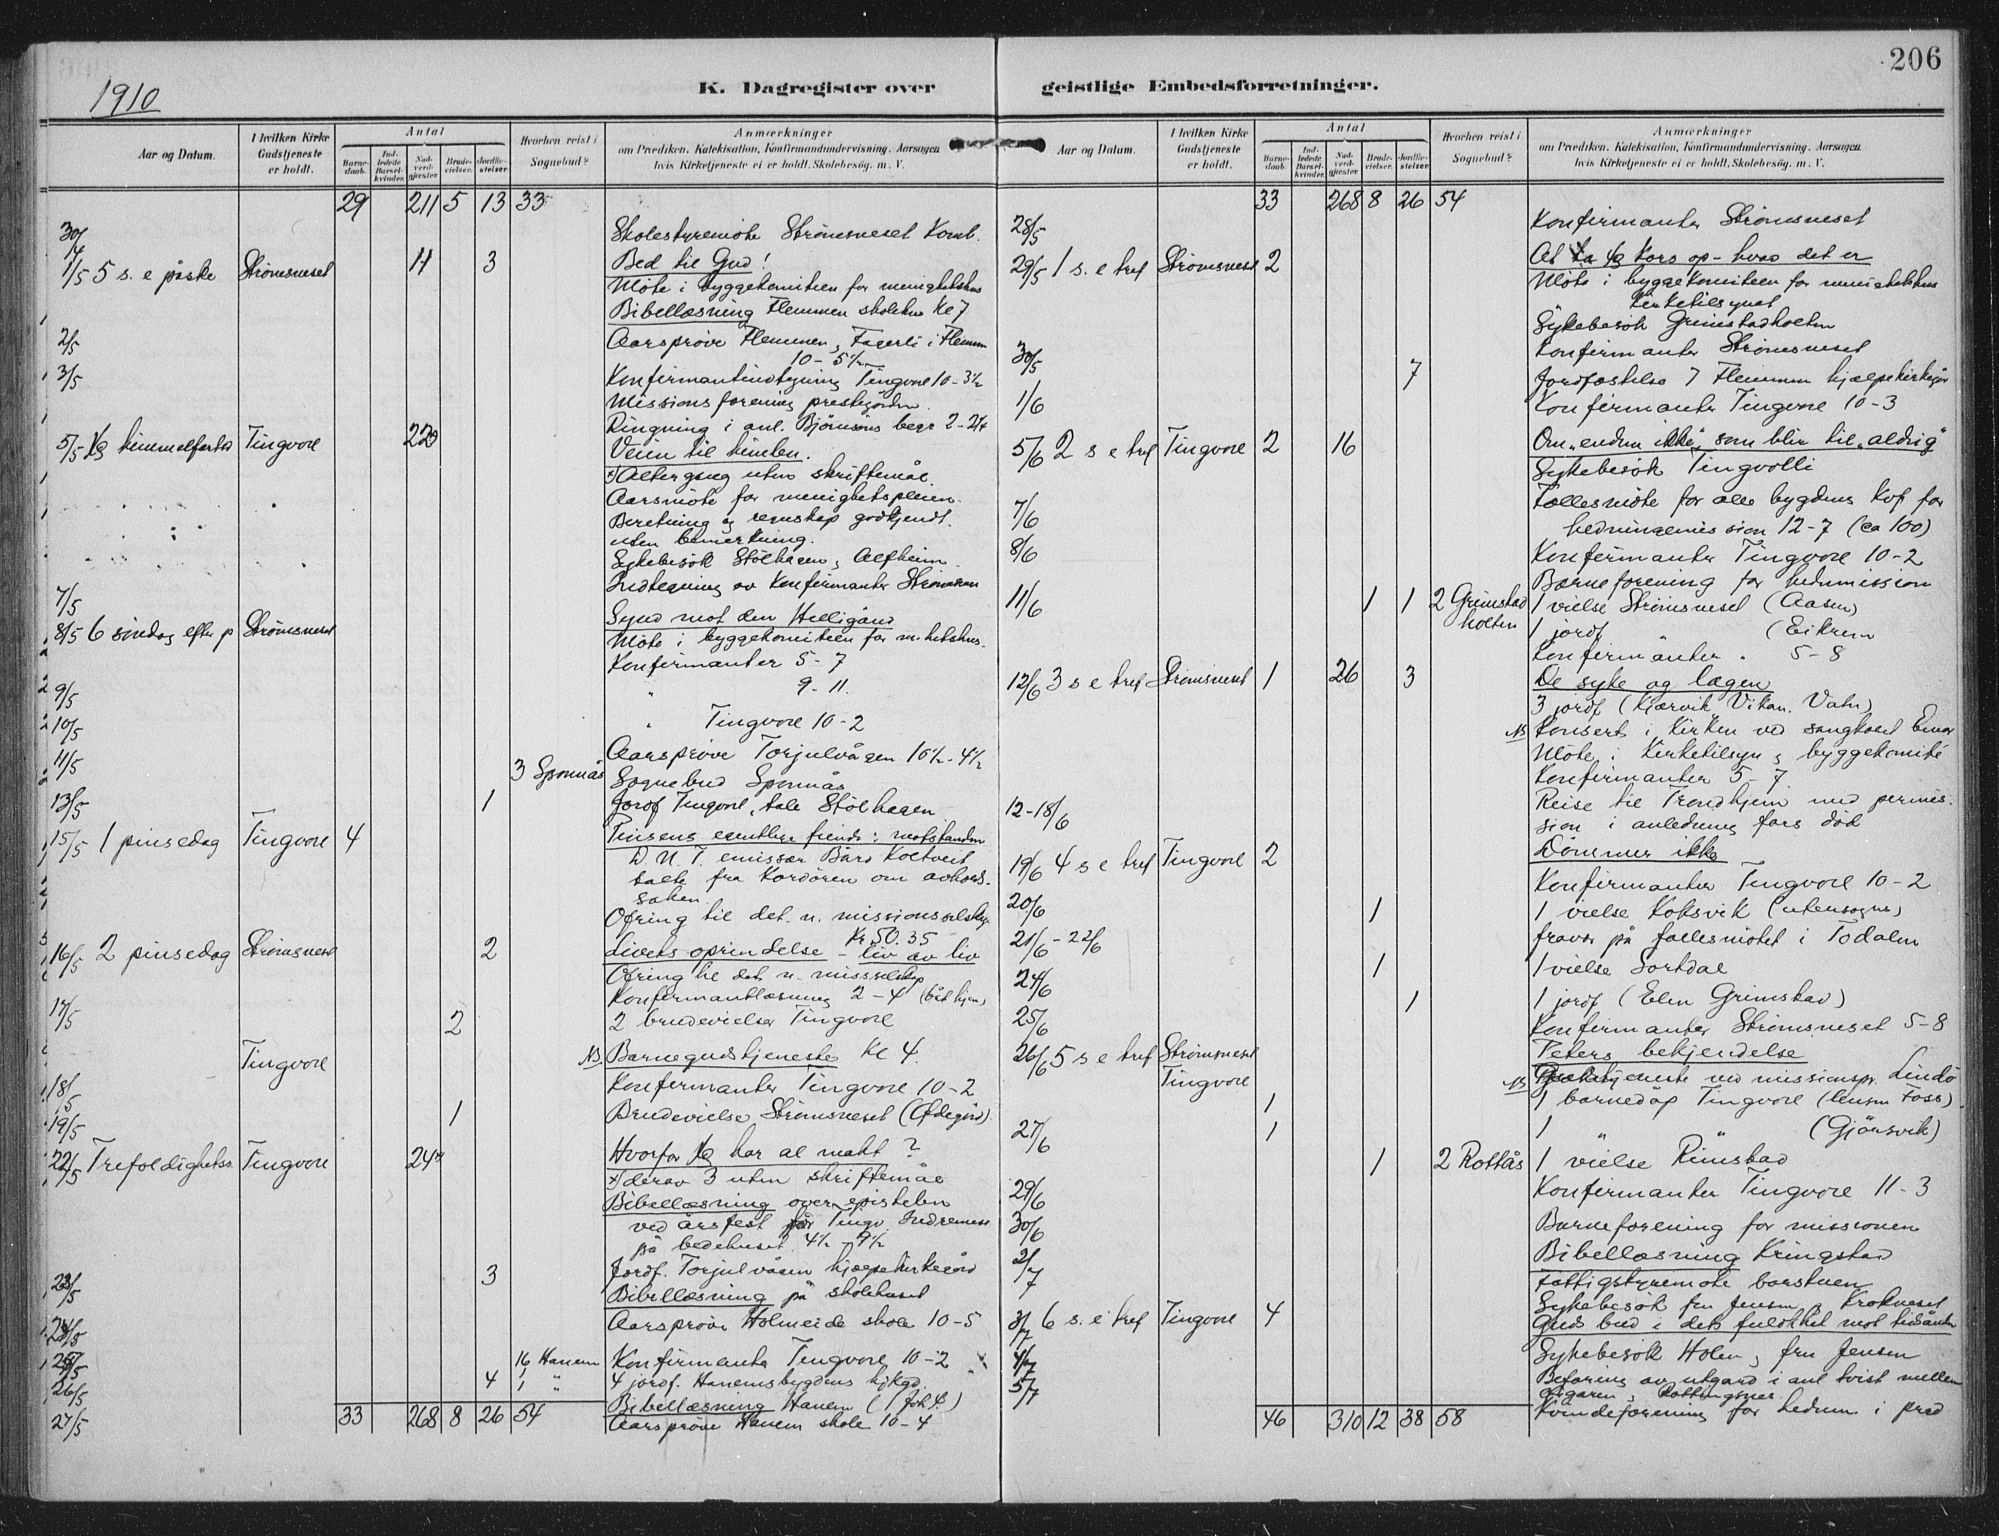 206
1910
K. Dagregister over geistlige Embedsforretninger.
Aar og Datum.
I hvilken Kirke Gudstjeneste er holdt.
Antal
Barnedaab.
Indledede Barselkvinder.
Nadverdgjæster.
Brudevielser.
Jordfæstelser
Hvorhen reist i Sognebud?
Anmærkninger
om Prædiken, Katekisation, Konfirmandundervisning, Aarsagen
hvis Kirketjeneste ei er holdt, Skolebesøg, m. V.
29 211 5 13 33
30/4 Skolestyremöte Strömsneset Komb.
1/5 5 s. e påske Strömsneset 11 3 Bed til Gud!
Möte i byggekomiteen for menighetshus
Bibellæsning Flemmen skolehus Kl 7
2/5 Aarspröve Flemmen, Fagerli i Flemm
10 - 5½
3/5 Konfirmantindtegning Tingvoll 10-3½
Missionsforening prestegården.
Ringning i anl. Björnsons begr
5/5 himmelfartsd Tingvoll 22 Veien til himlen.
Altergang uten skriftemål.
Aarsmöte for menighetspleien.
Beretning og regnskap godkjendt.
uten bemerkning.
Sykebesök Stölhagen, Alfheim
7/5 Indtegning av Konfirmanter Strömsnes
8/5 6 söndag efter p Strömsneset Synd mot den Helligånd
Möte i byggekomiteen for m.hetshus.
Konfirmanter 5-7
9/5 " 9-11.
10/5 " Tingvoll 10-2
11/5 Aarspröve Torjulvågen 10½-4½
3 Sponnås Sognebud Sponnås
13/5 1 Jordf Tingvoll, tale Stölhagen
15/5 1 pinsedag Tingvoll 4 Pinsens egentlige fiende: motstanden
D. N. T. emissær Bård
talte fra Kordören om avholds-
saken.
Ofring til det. n. missionsselskap
Kr 50.35
16/5 2 pinsedag Strömsneset 2 Livets oprindelse - liv av liv
Ofring til det n. misselskap
Konfirmantlæsning 2-4
17/5 2 2 brudevielser Tingvoll
Tingvoll NB Barnegudstjeneste Kl 4.
18/5 Konfirmanter Tingvoll 10-2
19/5 1 Brudevielse Strömsneset (Ödegård)
22/5 Trefoldighetss. Tingvoll 24 Hvorfor har al makt?
derav 3 uten skriftemål
Bibellæsning over epistelen
ved årsfest for Tingv. Indremiss
på bedehuset 4½ - 9½
23/5 3 Jordf. Torjulvågen hjælpekirkegård
Bibellæsning på skolehuset
24/5 Aarspröve Holmeide skole 10-5
25/5 16 Hanem Konfirmanter Tingvoll 10-2
26/5 4 1 " 4 jordf. Hanemsbygdens hjkgd.
Bibellæsning Hanem (1 Joh 4)
27/5 Aarspröve Hanem skole 10-4
33 268 8 26 54
Aar og Datum.
I hvilken Kirke Gudstjeneste er holdt.
Antal
Barnedaab.
Indledede Barselkvinder.
Nadverdgjæster.
Brudevielser.
Jordfæstelser
Hvorhen reist i Sognebud?
Anmærkninger
om Prædiken, Katekisation, Konfirmandundervisning, Aarsagen
hvis Kirketjeneste ei er holdt, Skolebesög, m. V.
33 268 8 26 54
28/5 Konfirmanter Strömsneset
29/5 1 s. e tref Strömsneset 2 At ta kors op - hvad det er
Möte i byggekomiteen for menighetshus
Kirketilsynet
Sykebesök Grimstadholten
30/5 Konfirmanter Strömsneset
7 Jordfæstelse 7 Flemmen hjælpekirkegår
1/6 Konfirmanter Tingvoll 10-3
5/6 2 s e tref Tingvoll 2 16 Om "endnu ikke" som blir til "aldrig"
Sykebesök Tingvolli
7/6 Fællesmöte for alle bygdens Kvf for
hedningemission 12-7 (ca 100)
8/6 Konfirmanter Tingvoll 10-2
Barneforening for hedmission
11/6 1 1 2 Grimstad holten 1 vielse Strömsneset (Aasen)
1 jordf " (Eikrem
Konfirmanter " 5-8
12/6 3 s e tref Strömsneset 1 26 3 De syke og lægen
3 jordf (Kjærvik Vikan. Vatn)
NB Konsert i Kirken ved sangkoret
Möte i Kirketilsyn og byggekomité
Konfirmanter 5-7.
12-18/6 Reise til Trondhjem med permis-
sion i anledning fars död
19/6 4 s e tref Tingvoll 2 Dömmer ikke
Konfirmanter Tingvoll 10-2
20/6 1 1 vielse Koksvik (utensogns)
21/6 - 22/6 fravær på fællesmötet i Todalen
24/6 1 1 vielse Sortdal
25/6 1 1 jordf (Elen Grimstad)
Konfirmanter Strömsneset 5-8
26/6 5 s e tref Strömsneset Peters bekjendelse
Tingvoll NB ved missionspr. Lindö
1 1 barnedåp Tingvoll (Foss)
27/6 1 1 " " (Gjörsvik)
1 2 Rottås 1 vielse Rimstad
29/6 Konfirmanter Tingvoll 11-3
30/6 Barneforening for missionen
2/7 Bibellæsning Kringstad
Fattigstyremöte borstuen
Sykebesök fru Jensen, Krokneset
3/7 6 s. e tref Tingvoll 4 Guds bud i dets fuldhet mot tidsånden
4/7 Sykebesök Holen, fru Jensen
5/7 Befaring av utgard i anl tvist mellem
Kvindeforening for hedm. i pred
46 310 12 38 58